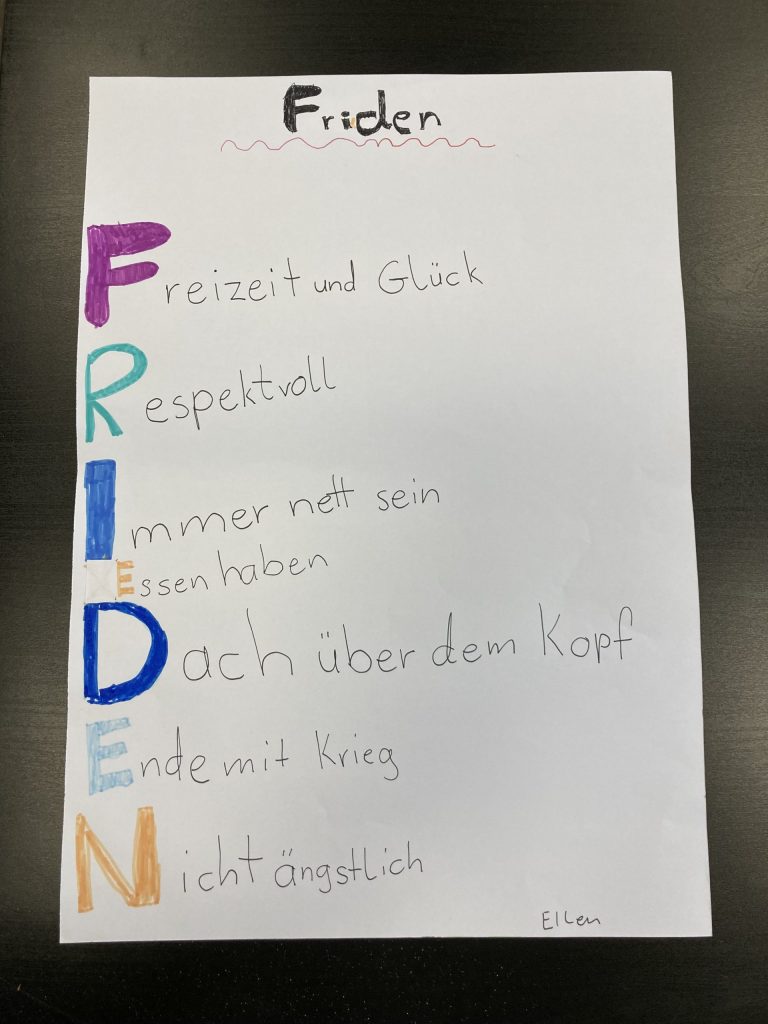 Frieden
Freizeit und Glück
Respektvoll
Immer nett sein
Essen haben
Dach über dem Kopf
Ende mit Krieg
Nicht ängstlich
Ellen